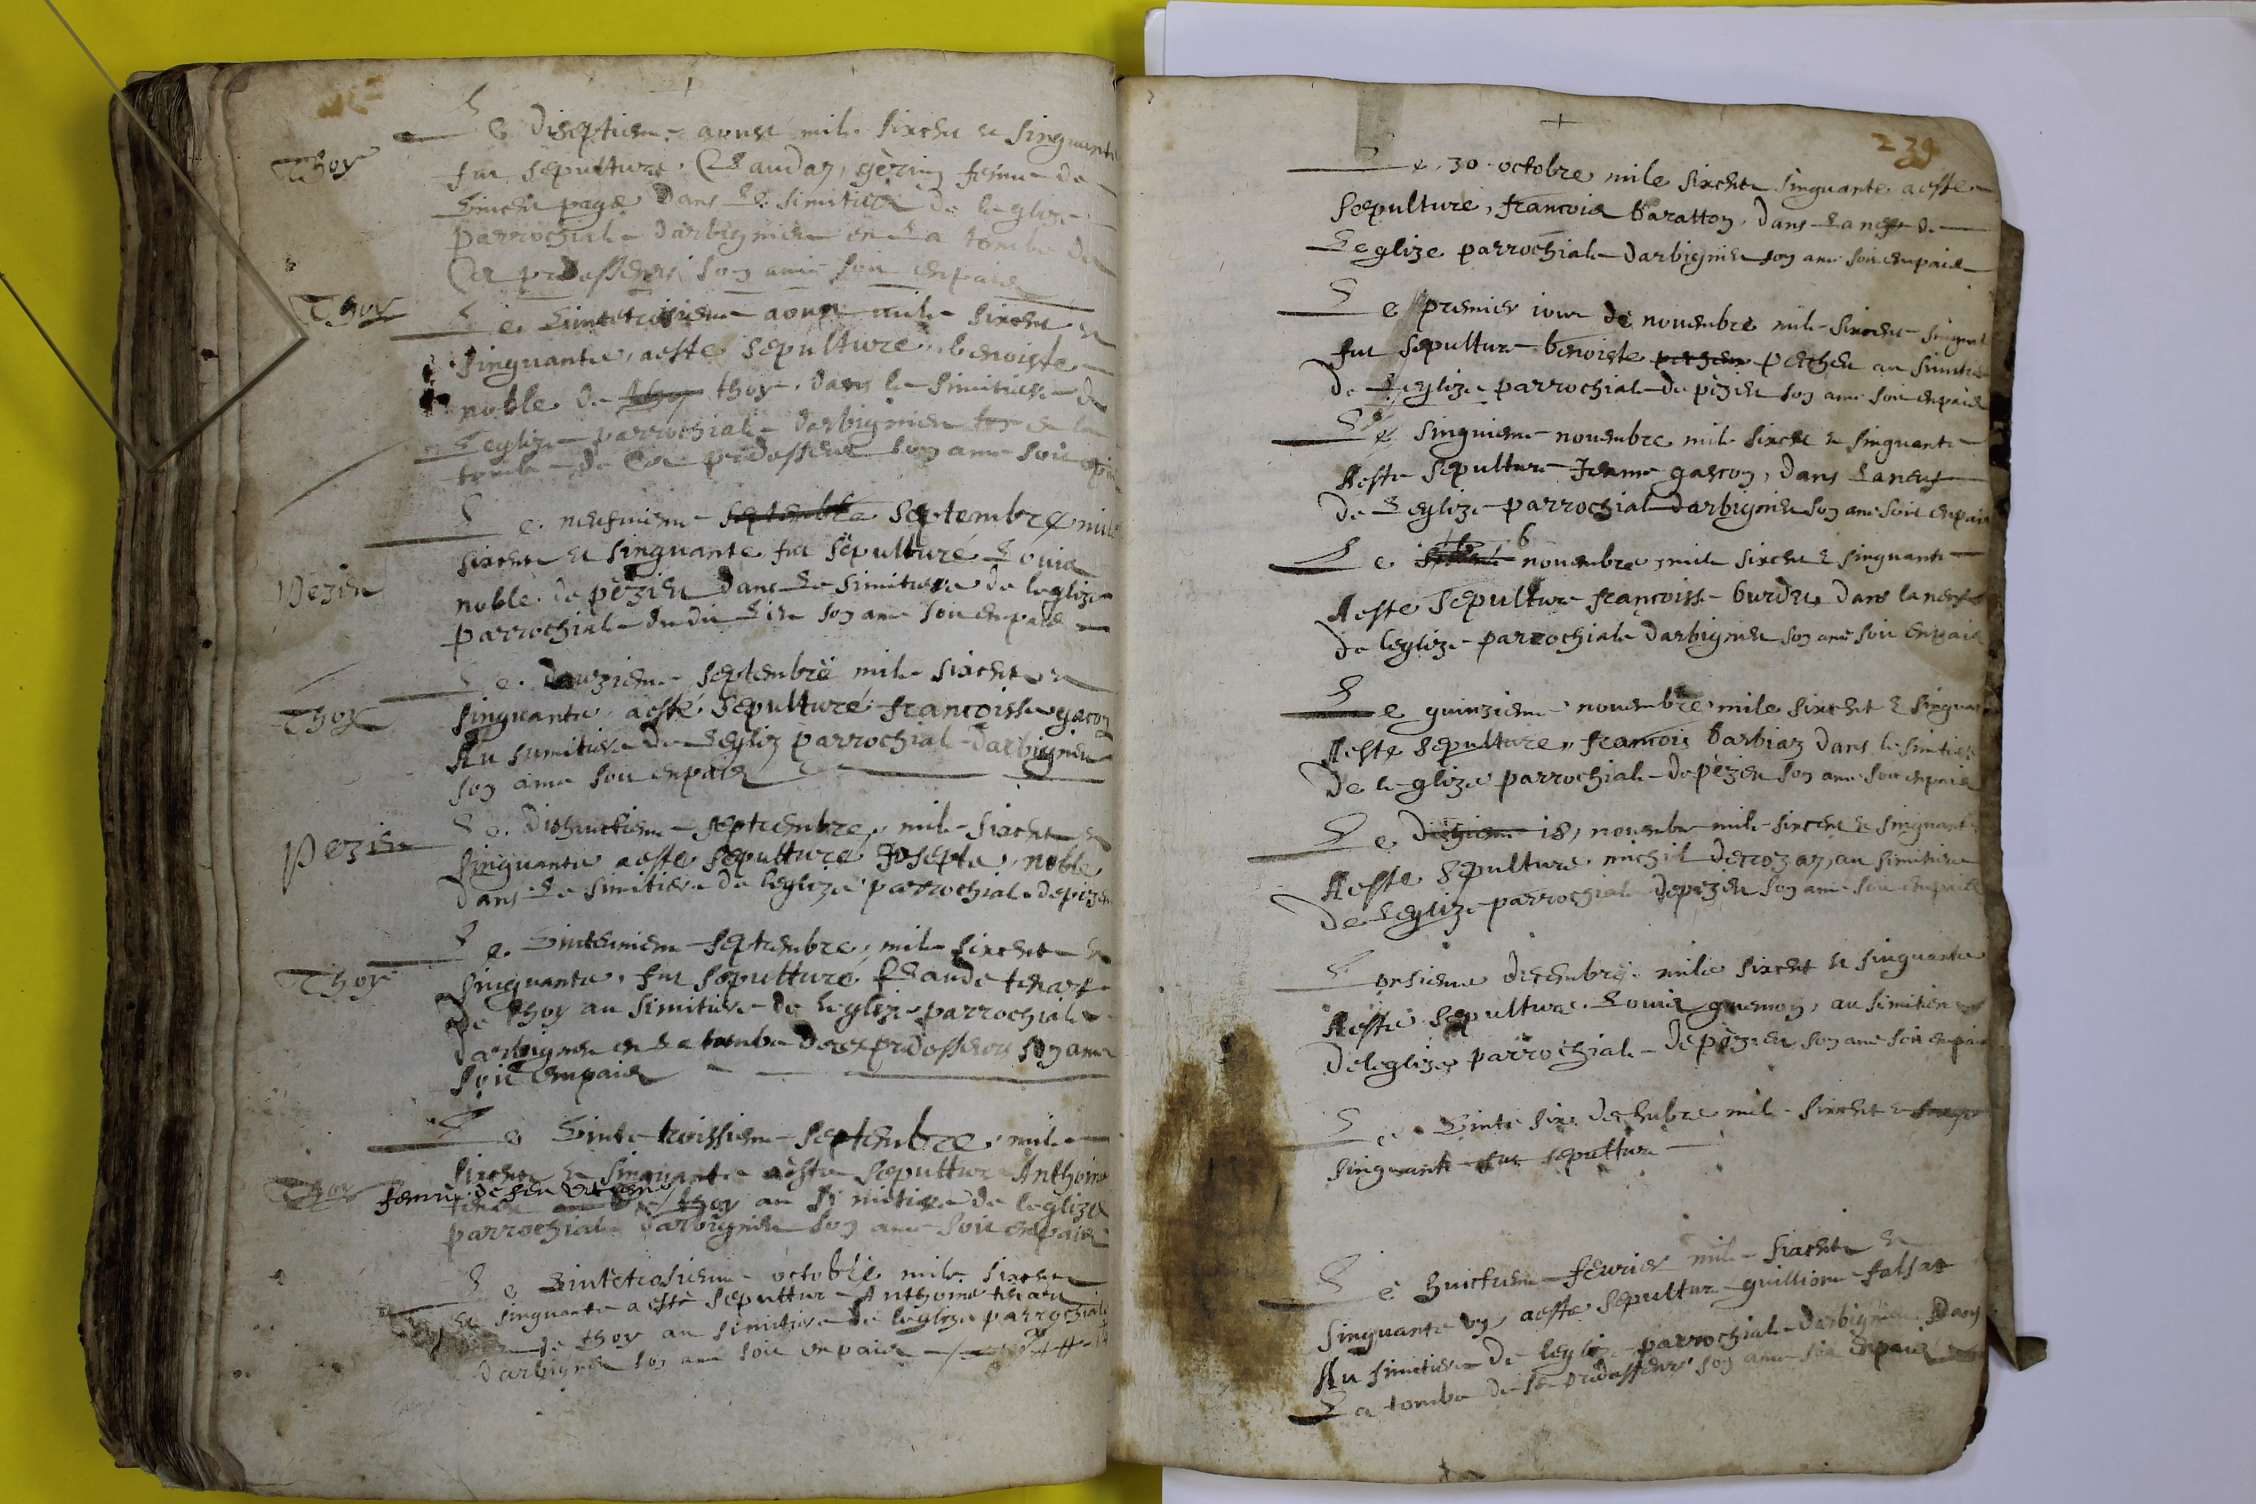 Le diseptiem aoust mile sixcent et singuante
Thoy
fut sepulture Claudaz gerin feme de
Vincent page dans Le simitiere de leglize
parrochiale darbignieu en La tombe de
Ces predessesers son ame soit enpaix
Thoy
Le Vintetroisieme aoust mile sixcent et
singuante, aeste sepulture benoiste
noble de thoy thoy, dans le simitiere de
Leglize parrochiale darbignieu et en la
tombe de Ces predesseurs son ame soit enpaix
Le neufvieme septembre Septembre mile
sixcent et singuante fut sepulturé Louis
Pezieu
noble de pezieu dans Le simitiere de leglize
parrochiale dudit Lieu son ame soit enpaix
Le douzieme septembre mile sixcent et
Thoy
singuante aesté Sepulturé françoisse gascon
Au simitiere de Legliz parrochiale darbignieu
son ame soit enpaix
Le dishuictieme septembre, mile sixcent et
Pezieu
singuante aeste sepulture Josepte noble
dans Le simitiere de leglize parrochiale depezieu
Le Vinteunieme septembre, mile sixcent et
Thoy
singuante, fut sepulturé, Claude tenart
de thoy au simitiere de leglize parrochiale
darbignieu en La tombe de ces predessers son ame
soit enpaix
Le Vinte troissieme septembre, mile
sixcent et singuante aeste sepulture Anthoine
Thoy
feme de feu
thoy au simitiere de leglize
parrochiale darbignieu son ame soit enpaix
Le Vintetrosieme octobre mile sixcent
et singuante aesté sepultur Anthoine
de thoy au simitiere de leglize parrochiale
darbignieu son ame soit enpaix
239
Le 30 octobre mile sixcent singuante aeste
Sepulture, francois baratton, dans La neff de
Leglize parrochiale darbignieu son ame soit enpaix
Le premier iour de novembre mile sixcent singuante
fut sepulture benoiste percheu au simitiere
de Leglize parrochiale de pezieu son ame soit enpaix
Le singuieme novembre mile sixcent et singuante
Aeste sepulture Jeanne gascon, dans La neuf
de Leglize parrochiale darbignieu son ame soit enpaix
Le 6 novembre, mile sixcent et singuante
Aeste Sepulture françoisse burdu, dans la neuf
de leglize parrochiale darbignieu son ame soit enpaix
Le guinzieme novembre mile sixcent et singuante
Aeste sepulture, francois barbiaz dans le simitiere
de leglize parrochiale de pezieu son ame soit enpaix
Le 18, novembre mile sixcent et singuante
Aeste sepulture michil derozaz, au simitiere
de Leglize parrochiale depezieu son ame soit enpaix
Lonsieme decembre mile sixcent et singuante
Aeste sepulture Louis guemon, au simitiere
de leglize parrochiale depezieu son ame soit enpaix
Le Vinte six decembre mile sixcent et
singuante fut sepulture
Le huictieme fevrier mile sixcent et
singuante un aeste sepultur guilliome falsat
Au simitiere de leglize parrochiale darbignieu Dans
La tombe de se predessers son ame soit enpaix